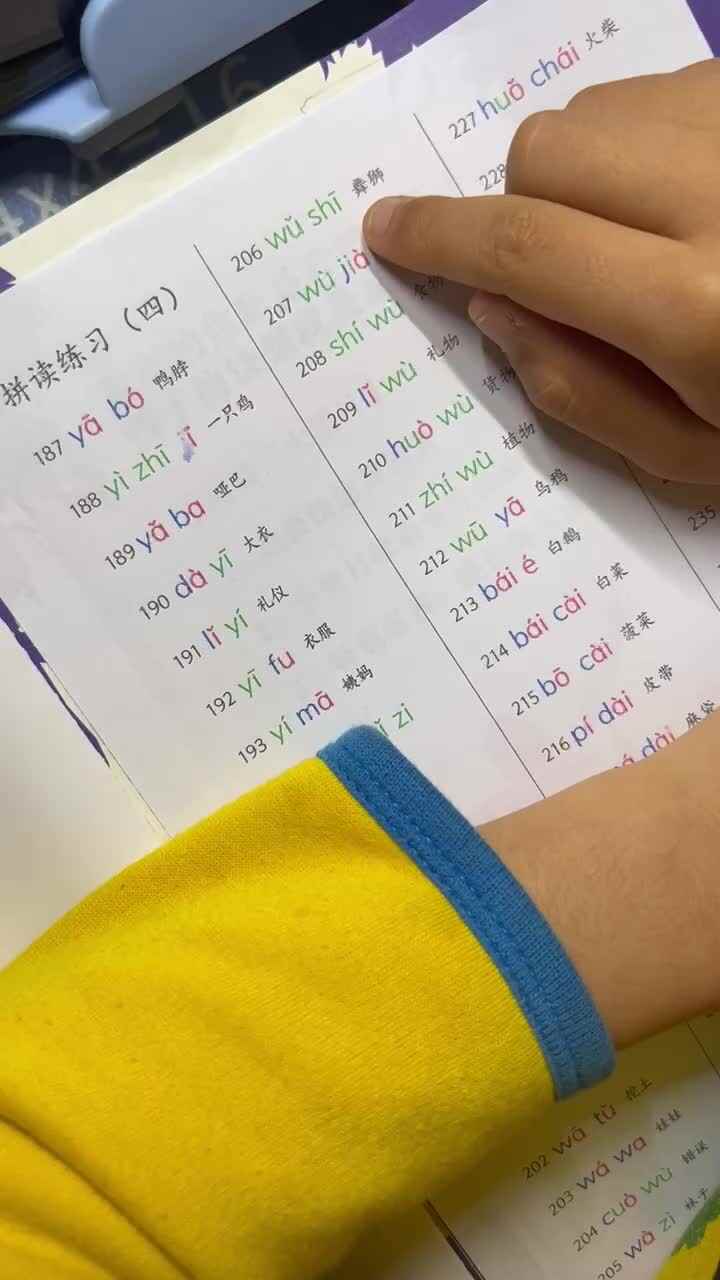 拼读练习（四）
187 yā bó 鸭脖
188 yì zhī jī 一只鸡
189 yǎ ba 哑巴
190 dà yī 大衣
191 lǐ yí 礼仪
192 yī fu 衣服
193 yí mā 姨妈
zi
206 wǔ shī 舞狮
207 wù jià
208 shí wù 食物
209 lǐ wù 礼物
210 huò wù 货物
211 zhí wù 植物
212 wū yā 乌鸦
213 bái é 白鹅
214 bái cài 白菜
215 bō cài 菠菜
216 pí dài 皮带
dài 麻袋
227 huǒ chái 火柴
228
235
202 wā tǔ 挖土
203 wá wa 娃娃
204 cuò wù 错误
205 wà zi 袜子